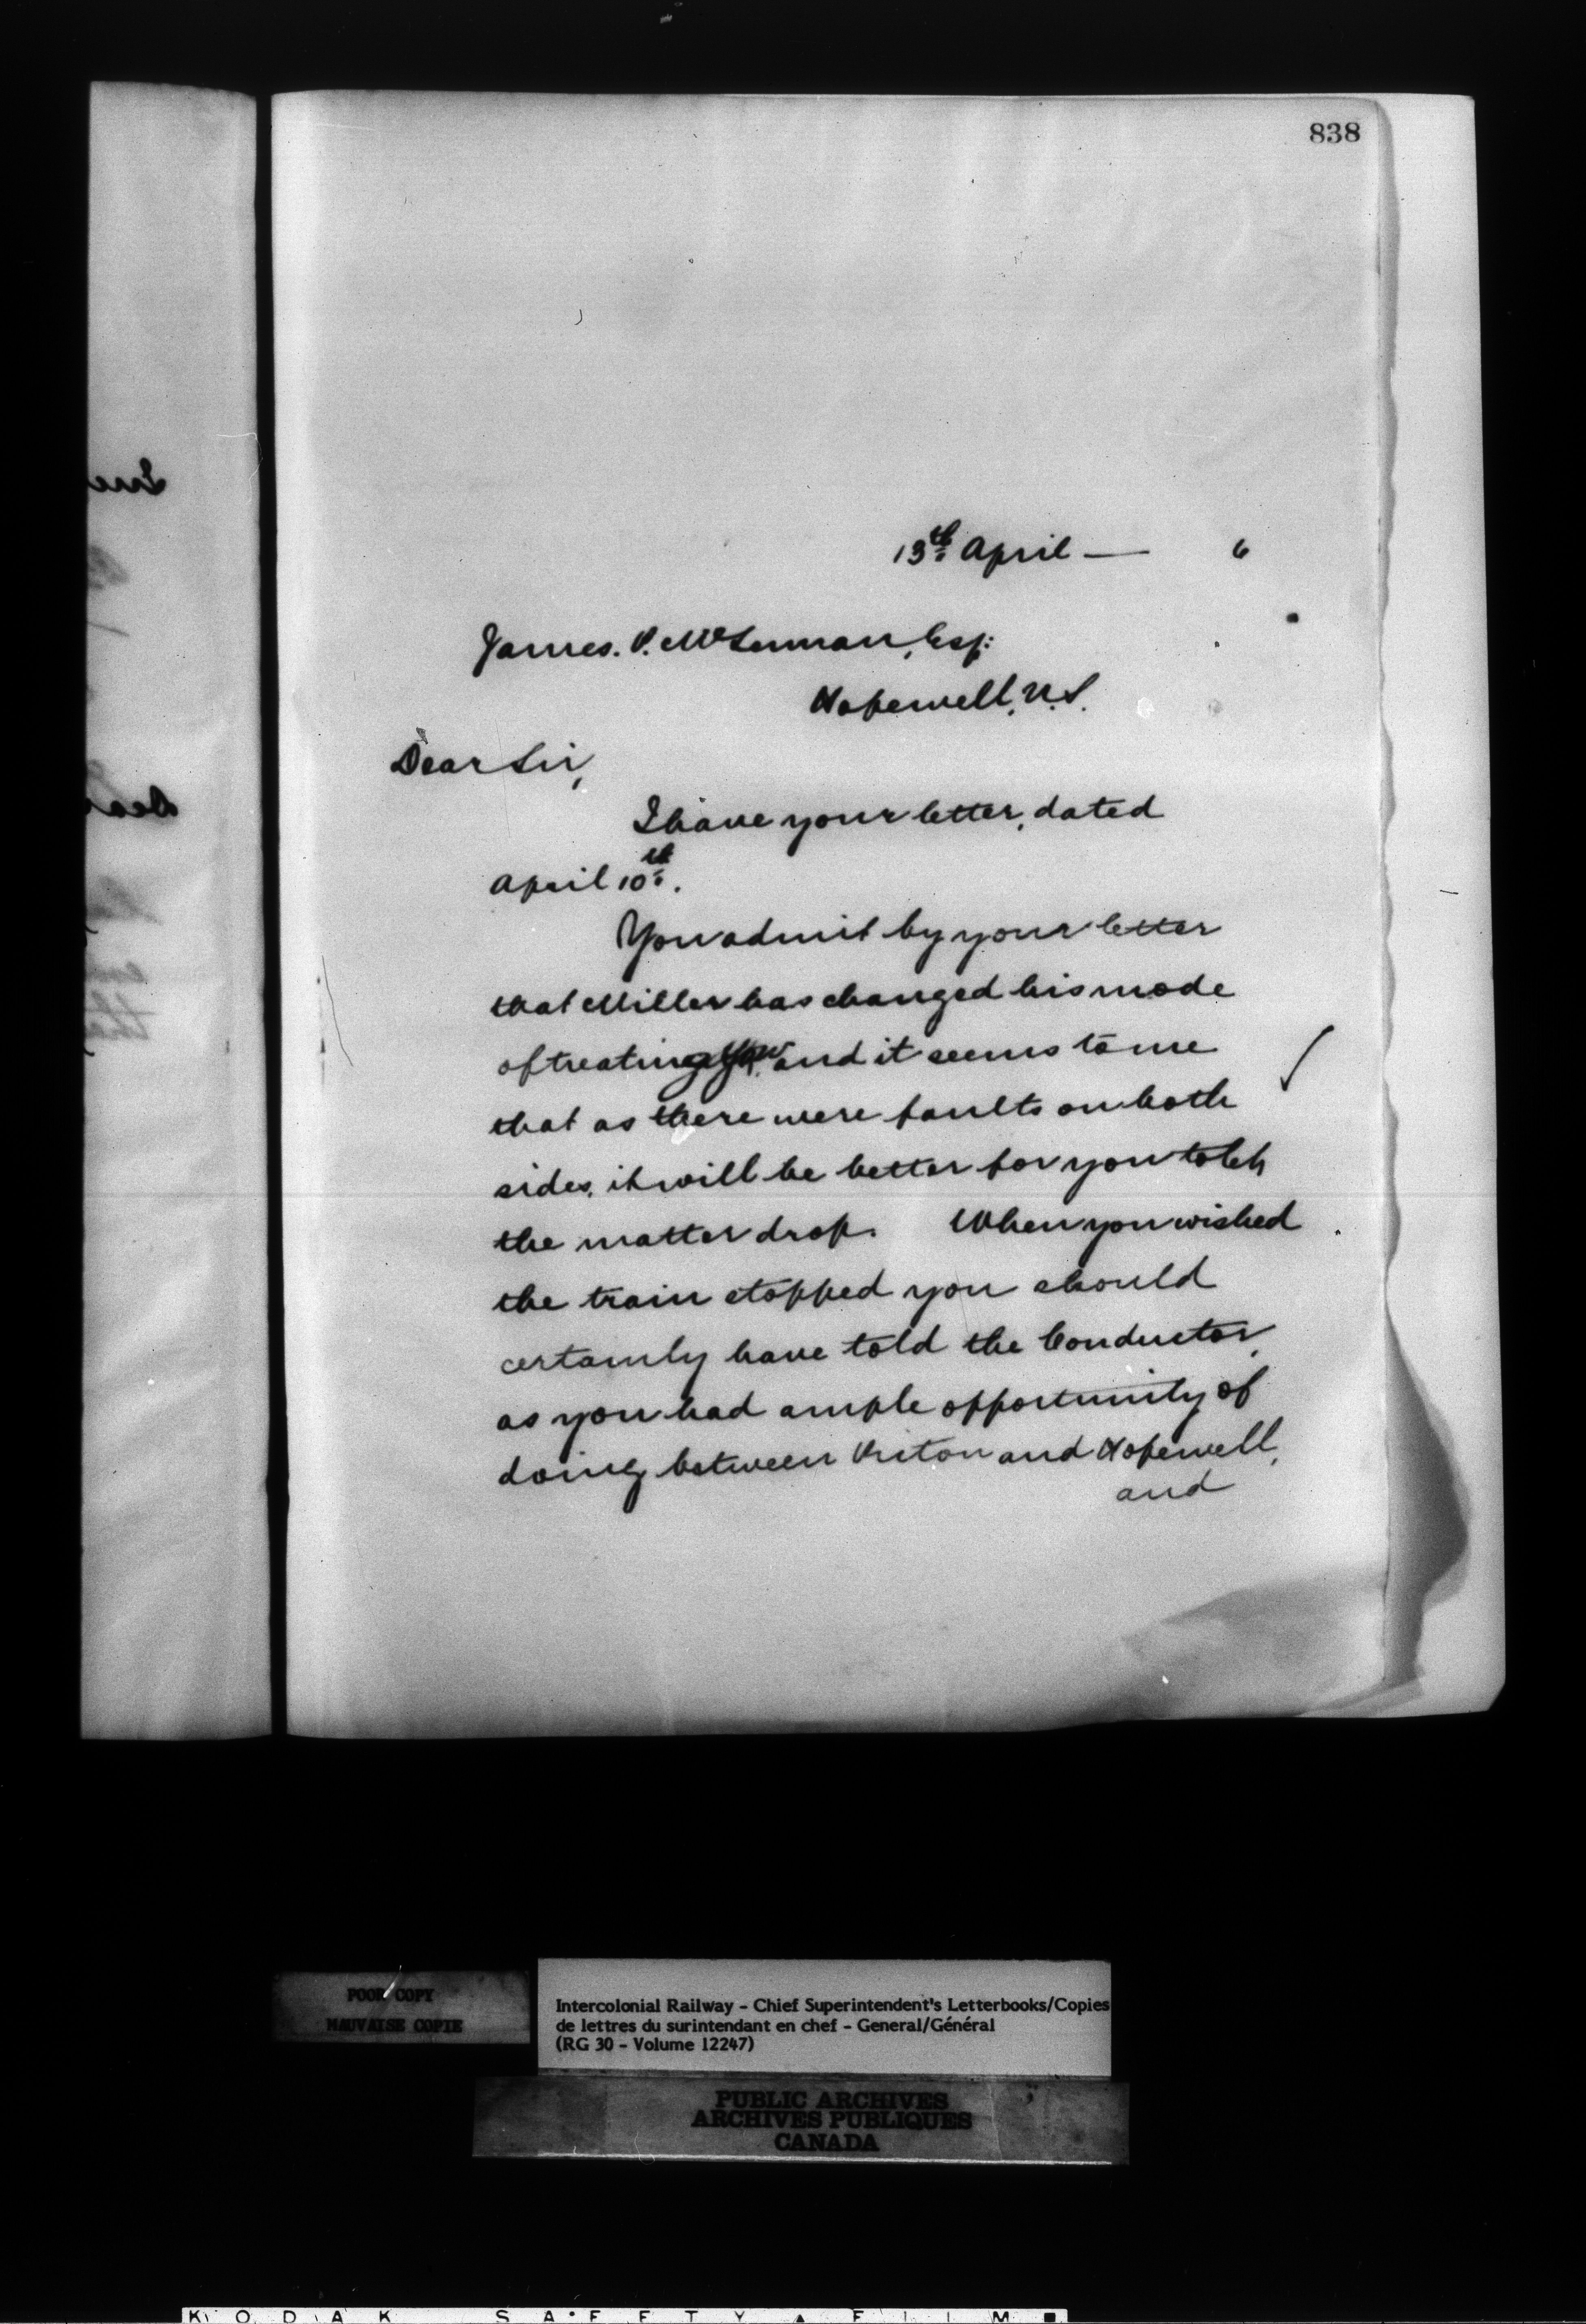 838
13th April — 6
James. P. McLennan, Esq:
Hopewell, N.S.
Dear Sir,
I have your letter, dated
April 10th.
You admit by your letter
that Miller has changed his mode
of treating you and it seems to me
that as there were faults on both
sides, it will be better for you to let
the matter drop. When you wished
the train stopped you should
certainly have told the Conductor,
as you had ample opportunity of
doing between and Hopewell,
and
POOR COPY
MAUVAISE COPIE
Intercolonial Railway - Chief Superintendent's Letterbooks/Copies
de lettres du surintendant en chef - General/Général
(RG 30 - Volume 12247)
PUBLIC ARCHIVES
ARCHIVES PUBLIQUES
CANADA
KODAK SAFETY FILM